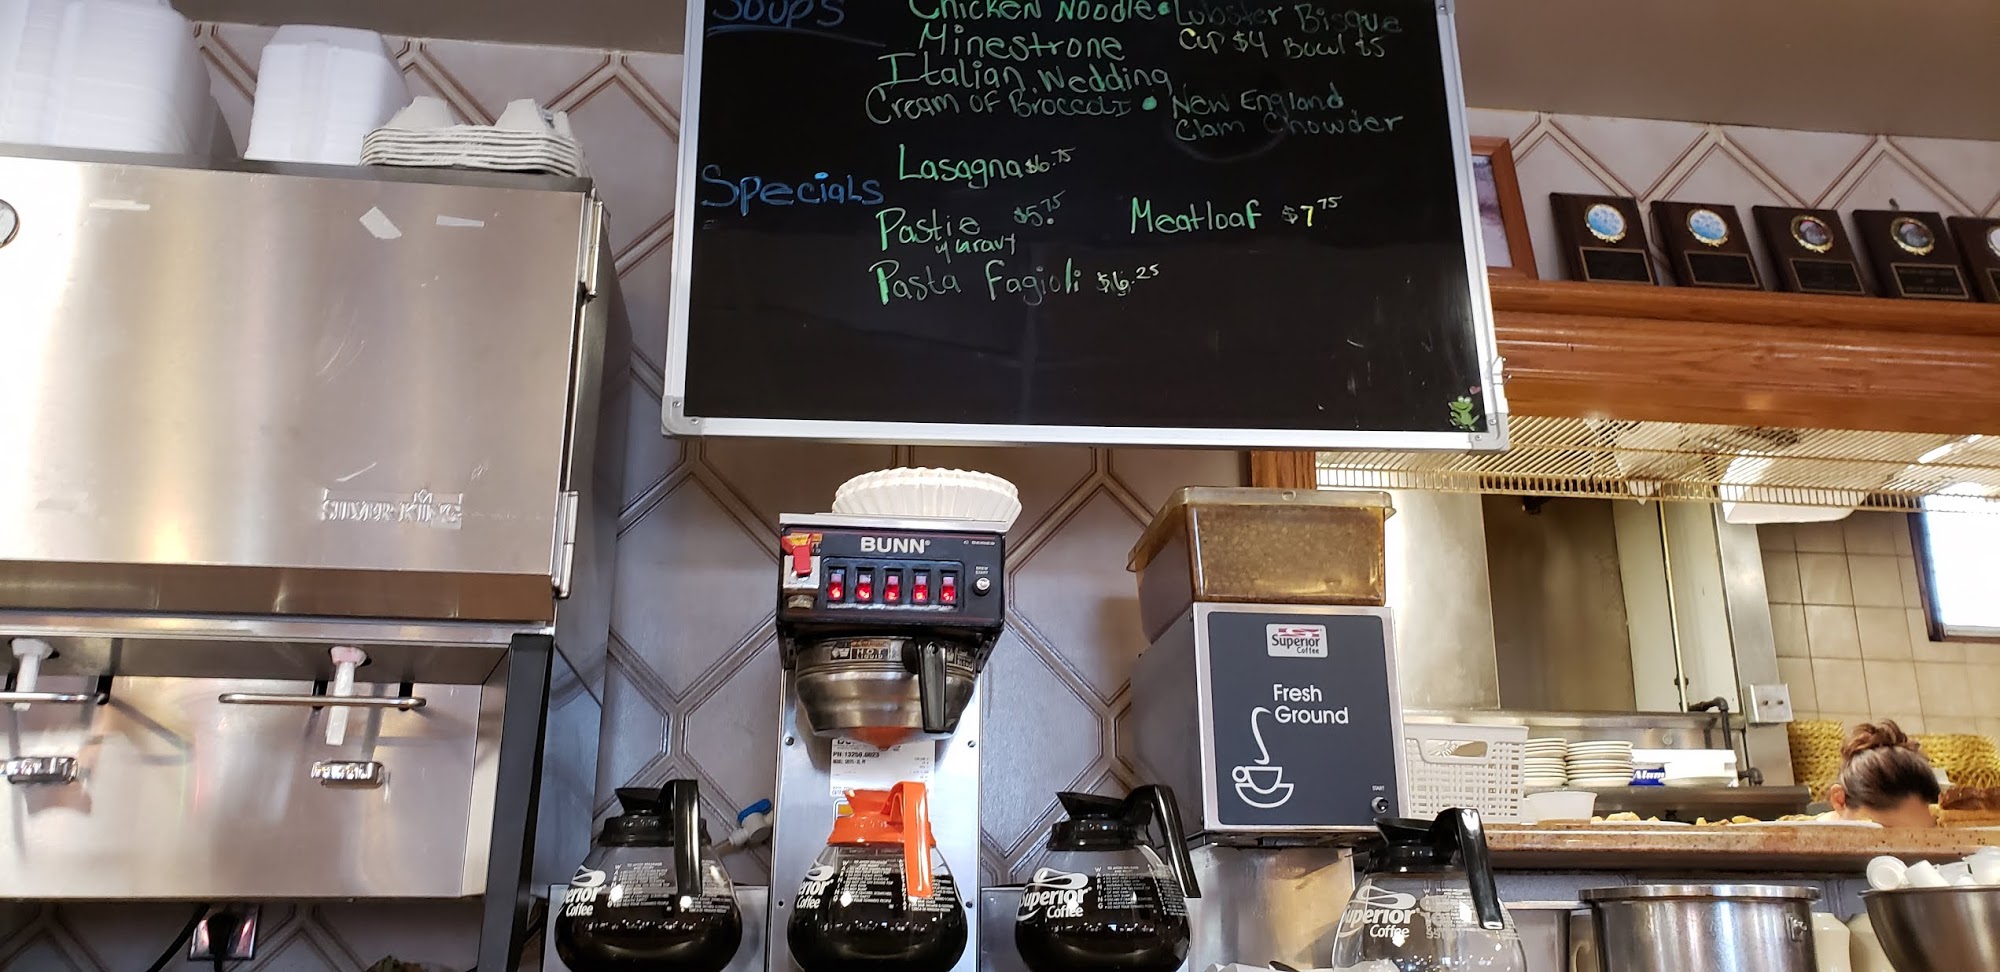 Soups
Chicken Noodle • Lobster Bisque
Cup $4 Bowl $5
Minestrone
Italian Wedding
Cream OF Broccoli • New England
Clam Chowder
Specials
Lasagna $6.75
Pastie $5.75
w/ Gravy
Meatloaf $7.75
Pasta Fagioli $6.25
SILVER KING
BUNN
Superior
Coffee
Fresh
Ground
START
Superior
Coffee
Superior
Coffee
Superior
Coffee